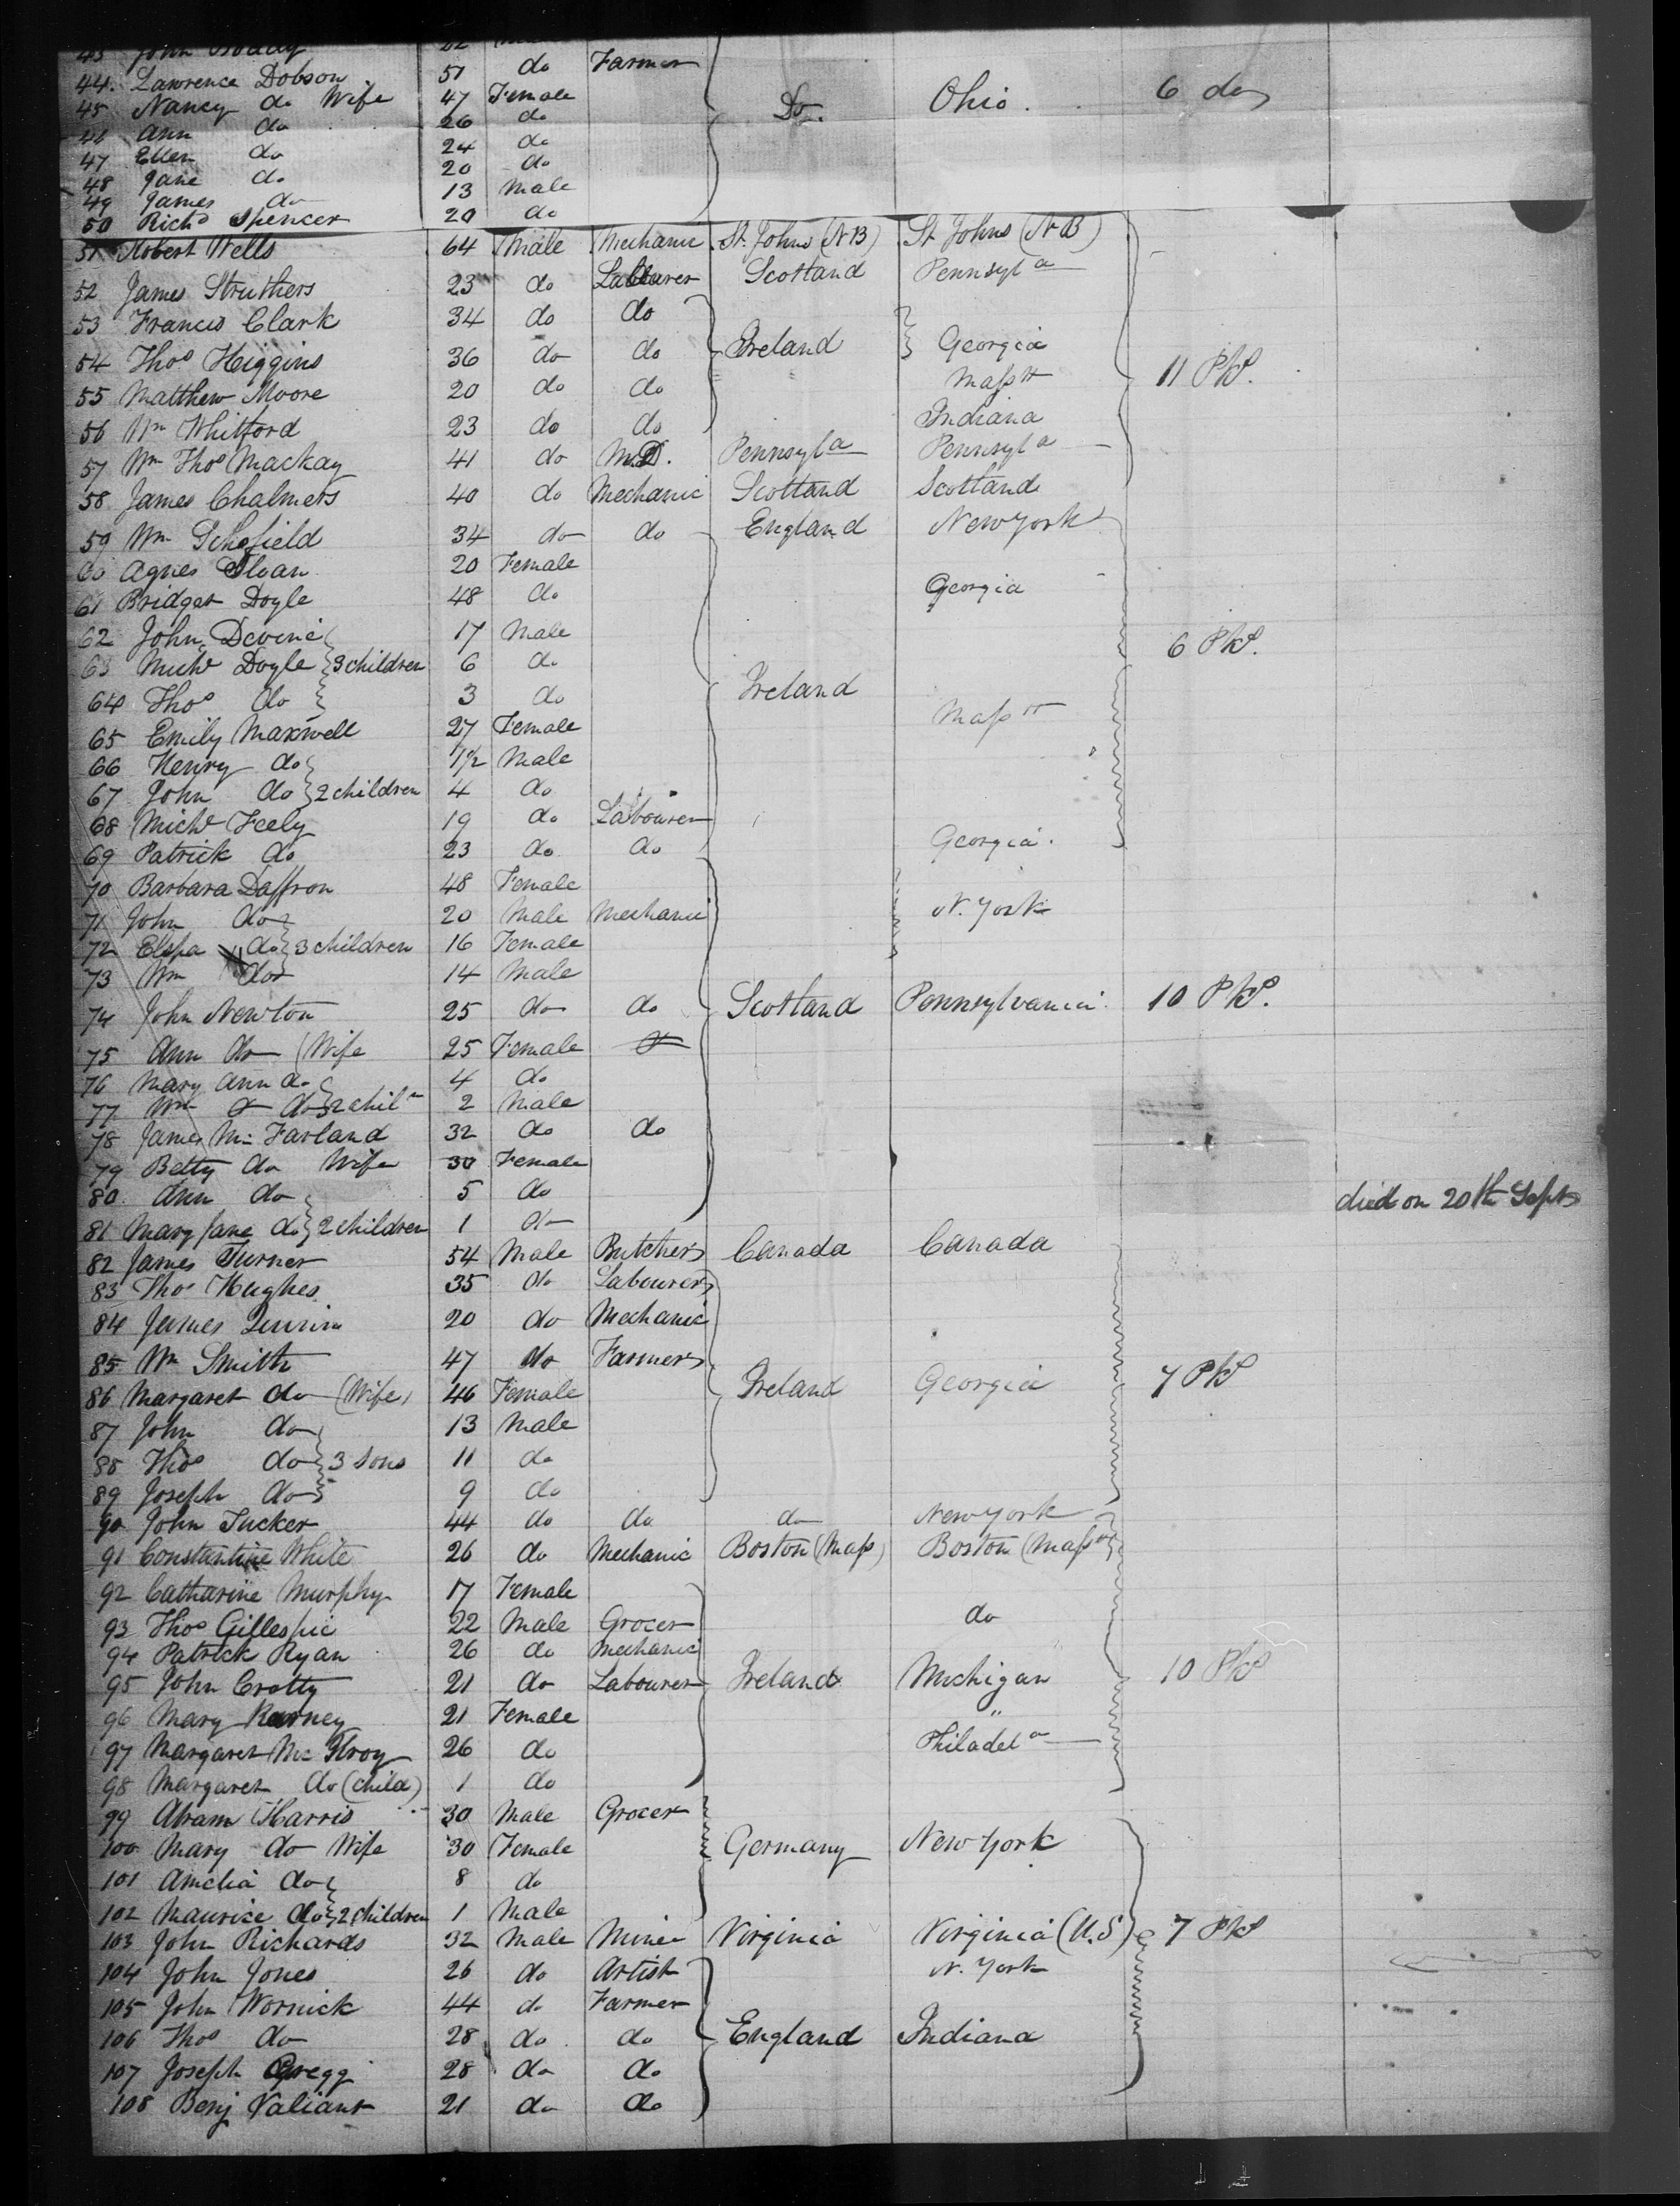 44. Lawrence Dobson 51 do Farmer
45 Nancy do Wife 47 Female Do. Ohio. 6 do
46 Ann do 26 do
47 Ellen do 24 do
48 Jane do 20 do
49 James do 13 Male
50 Richd Spencer 20 do
51 Robert Wells 64 Male Mechanic St. Johns (NB) St Johns (NB)
52 James Struthers 23 do Labourer Scotland Pennsyla
53 Francis Clark 34 do do
54 Thos Higgins 36 do do Ireland Georgia 11 Pks.
55 Matthew Moore 20 do do Masstts
56 Wm Whitford 23 do do Indiana
57 Wm Thos Mackay 41 do M.D. Pennsyla Pennsyla
58 James Chalmers 40 do Mechanic Scotland Scotland
59 Wm Schofield 34 do do England New York
60 Agnes Sloan 20 Female
61 Bridget Doyle 48 do Georgia
62 John Devine 17 Male
63 Michl Doyle 3 children 6 do 6 Pks.
64 Thos do 3 do Ireland
65 Emily Maxwell 27 Female Masstts
66 Henry do 1½ Male
67 John do 2 children 4 do
68 Michl Feely 19 do Labourer
69 Patrick do 23 do do Georgia.
70 Barbara Daffron 48 Female
71 John do 20 Male Mechanic N. York
72 Elspa do 3 children 16 Female
73 Wm do 14 Male
74 John Newton 25 do do Scotland Pennsylvania 10 Pks.
75 Ann do (Wife 25 Female
76 Mary Ann do 4 do
77 Wm do 2 chiln 2 Male
78 James Mc Farland 32 do do
79 Betty do Wife 30 Female
80. Ann do 5 do died on 20th Sept
81 Mary Jane do 2 children 1 do
82 James Turner 54 Male Butcher Canada Canada
83 Thos Hughes 35 do Labourer
84 James 20 do Mechanic
85 Wm Smith 47 do Farmer
86 Margaret do (Wife) 46 Female Ireland Georgia 7 Pks
87 John do 13 Male
88 Thos do 3 sons 11 do
89 Joseph do 9 do
90 John Tucker 44 do do do New York
91 Constantine White 26 do Mechanic Boston (Mass) Boston (Masstts)
92 Catharine Murphy 17 Female
93 Thos Gillespie 22 Male Grocer do
94 Patrick Ryan 26 do Mechanic
95 John Crotty 21 do Labourer Ireland Michigan 10 Pks
96 Mary Kearney 21 Female "
97 Margaret Mc Ilroy 26 do Philadela
98 Margaret do (child) 1 do
99 Abram Harris 30 Male Grocer
100 Mary do Wife 30 Female Germany New York
101 Amelia do 8 do
102 Maurice do 2 children 1 Male
103 John Richards 32 Male Miner Virginia Virginia (U.S) 7 Pks
104 John Jones 26 do Artist N. York
105 John Wornick 44 do Farmer
106 Thos do 28 do do England Indiana
107 Joseph Gregg 28 do do
108 Benj Valiant 21 do do